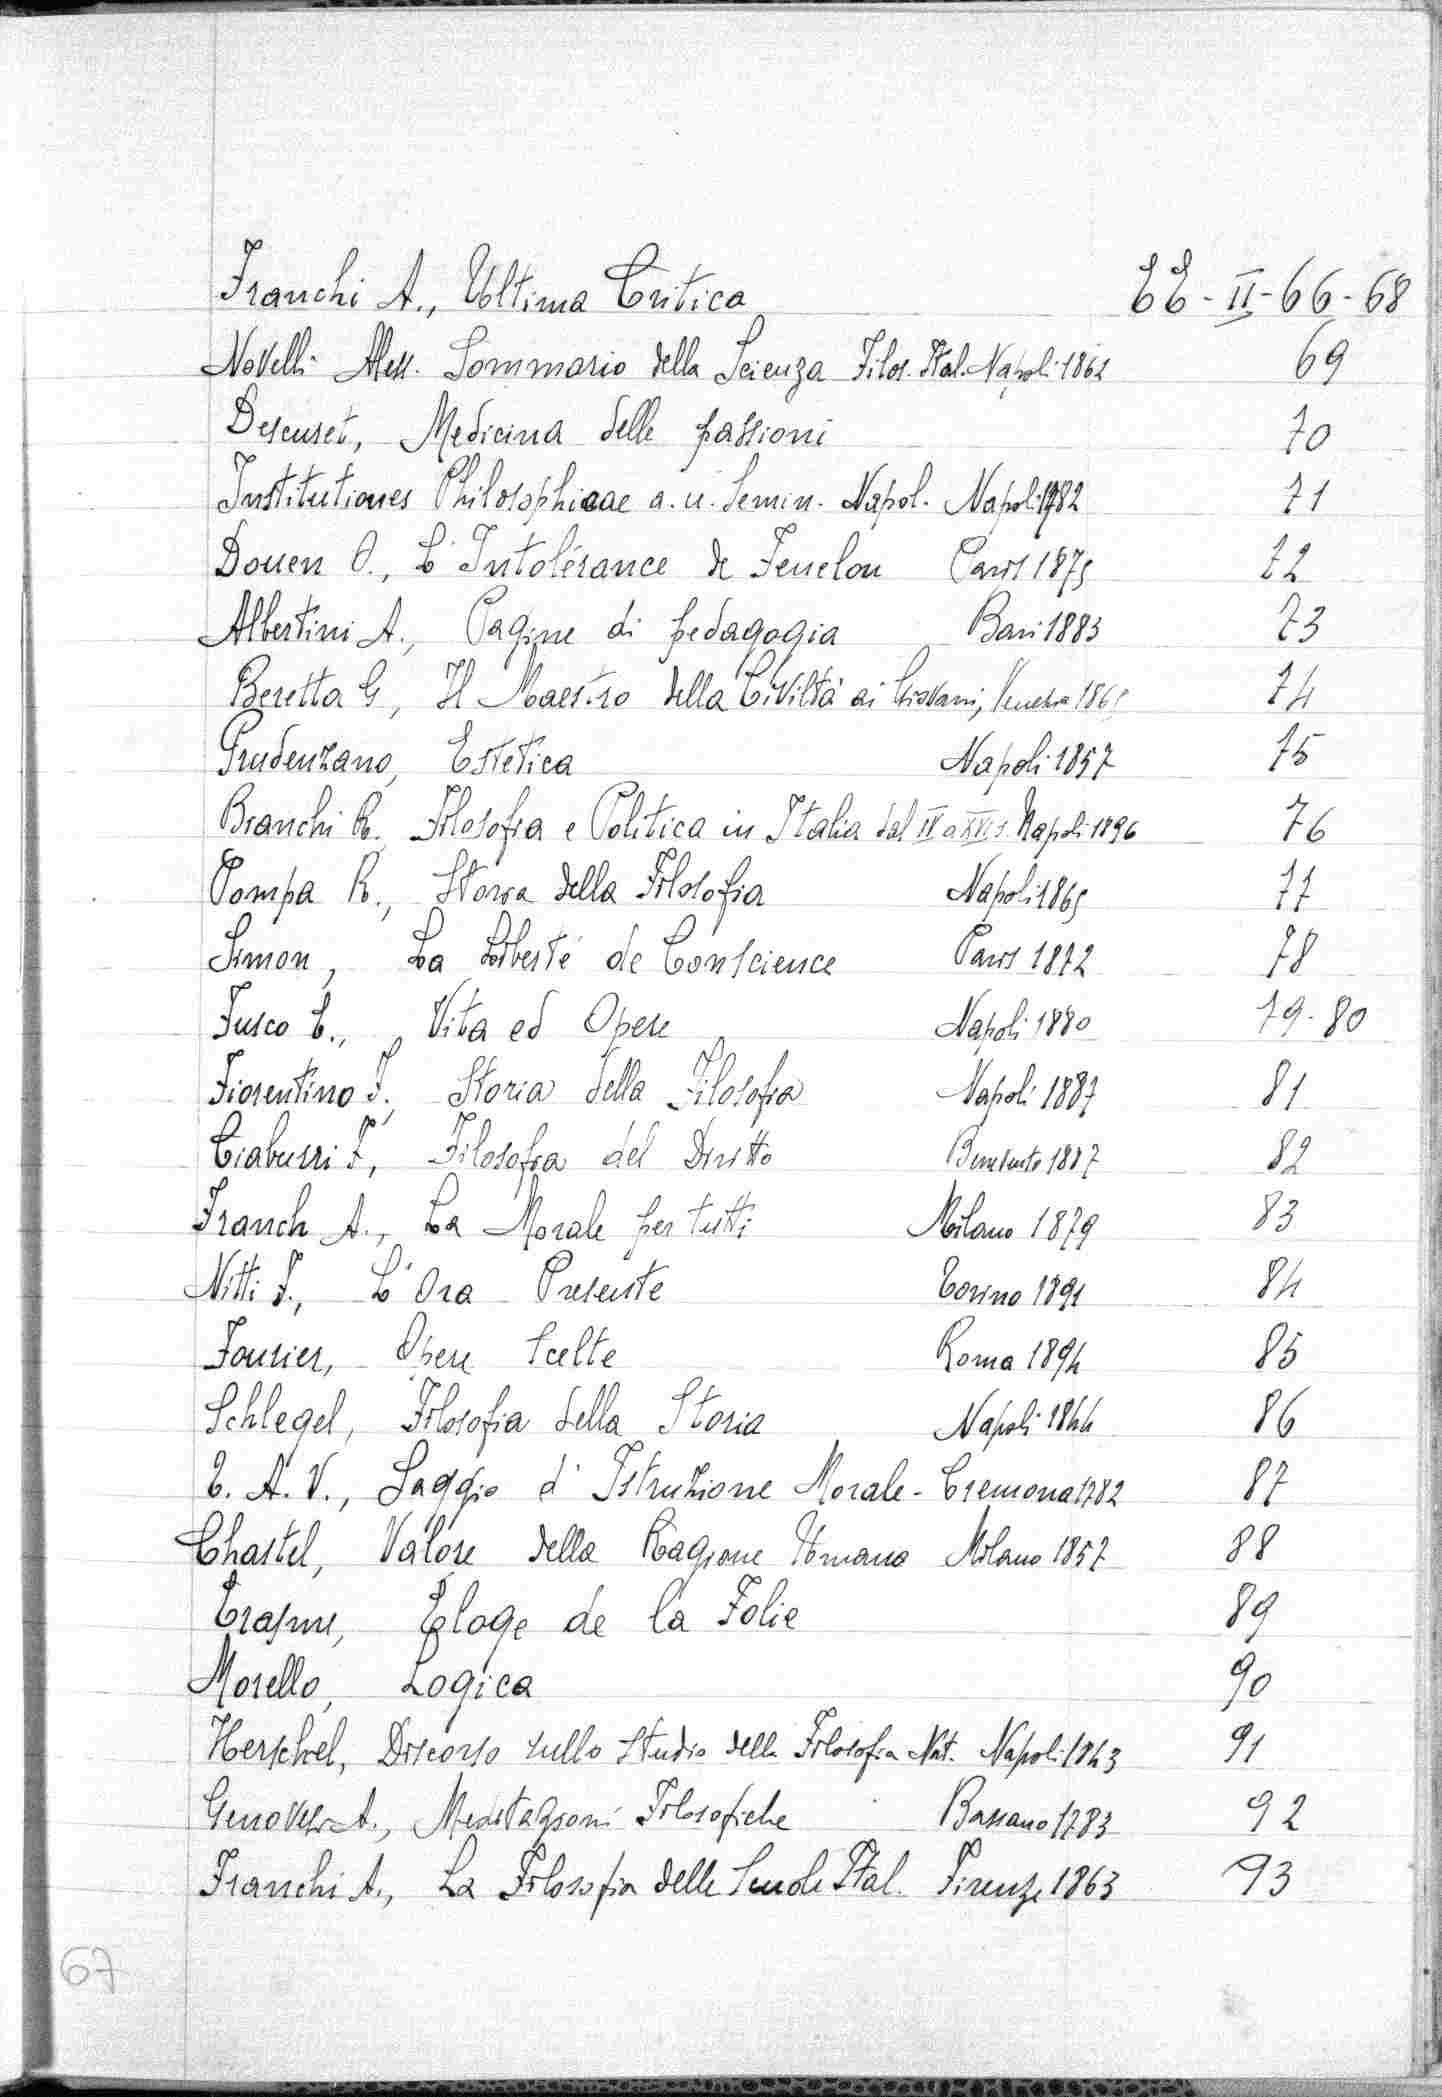 Franchi A., Ultima Critica EE - II - 66 - 68
Novelli Aless. Sommario della Scienza Filos. Ital. Napoli 1862 69
Descuret, Medicina delle passioni 70
Institutiones Philosophicae a. u. Semin. Napol. Napoli 1782 71
Douen O., L'Intolérance de Fenelon Paris 1875 72
Albertini A., Pagine di pedagogia Bari 1883 73
Beretta G, Il Maestro della Civiltà ai Giovani, Venezia 74
Prudenzano, Estetica Napoli 1857 75
Bianchi R. Filosofia e Politica in Italia dal IV a XVI s. Napoli 1896 76
Pompa R., Storia della Filosofia Napoli 1865 77
Simon, La Liberté de Conscience Paris 1872 78
Fusco E., Vita ed Opere Napoli 1880 79 - 80
Fiorentino F., Storia della Filosofia Napoli 1887 81
Ciaburri F, Filosofia del Diritto Benevento 1887 82
Franch A., La Morale per tutti Milano 1879 83
Nitti F., L'Ora Presente Torino 1891 84
Fourier, Opere Scelte Roma 1894 85
Schlegel, Filosofia della Storia Napoli 1844 86
T. A. V., Saggio d'Istruzione Morale - Cremona 1782 87
Chastel, Valore della Ragione Umana Milano 1857 88
Erasme, Eloge de la Folie 89
Morello, Logica 90
Herschel, Discorso sullo studio della Filosofia Nat. Napoli 1843 91
Genovesi A., Meditazioni Filosofiche Bassano 1783 92
Franchi A., La Filosofia delle Scuole Ital. Firenze 1863 93
67